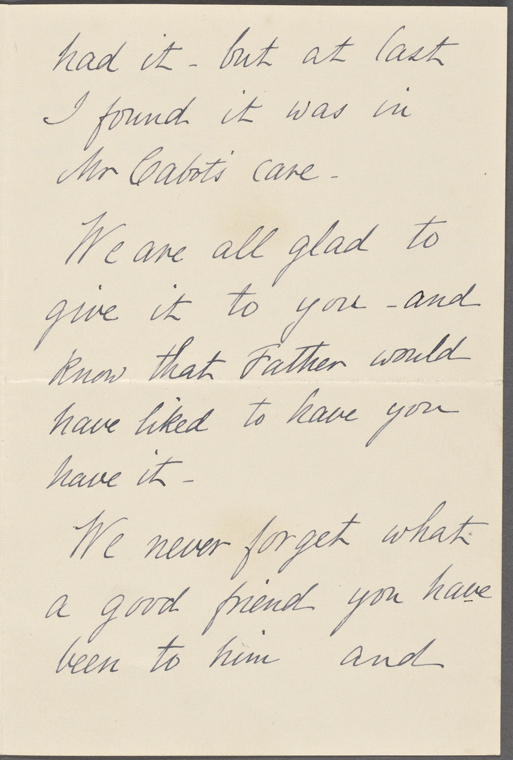 had it - but at last
I found it was in
Mr Cabot's care -
We are all glad to
give it to you - and
know that Father would
have liked to have you
have it -
We never forget what
a good friend you have
been to him and